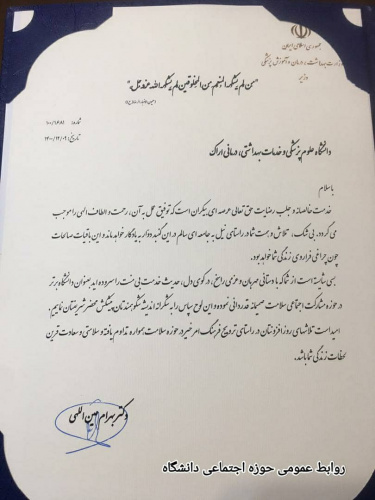 جمهوری اسلامی ایران
وزارت بهداشت، درمان و آموزش پزشکی
وزیر
"من لم یشکر المنعم من المخلوقین لم یشکر الله عزوجل"
شماره: ۱۰۰/۱۶۸۱
تاریخ: ۱۴۰۰/۱۲/۰۹
دانشگاه علوم پزشکی و خدمات بهداشتی، درمانی اراک
با سلام
خدمت خالصانه و جلب رضایت حق تعالی عرصه ای بیکران است که توفیق عمل به آن، رحمت و الطاف الهی را موجب
می گردد. بی شک، تلاش و همت شما در راستای نیل به جامعه ای سالم در این گنبد دوار به یادگار خواهد ماند و این باقیات صالحات
چون چراغی فراروی زندگی شما خواهد بود.
بسی شایسته است از شما که با دستانی مهربان و عزمی راسخ، در کوی دل، حدیث خدمت بی منت را سروده اید بعنوان دانشگاه برتر
در حوزه مشارکت اجتماعی سلامت صمیمانه قدردانی نموده و این لوح سپاس را به شکرانه اندیشه سبز و هنرمندتان پیشکش محضر شریفتان نماییم.
امید است تلاشهای روزافزونتان در راستای ترویج فرهنگ امر خیر در حوزه سلامت، همواره تداوم یافته و سلامتی و سعادت قرین
لحظات زندگی شما باشد.
دکتر بهرام عین اللهی
روابط عمومی حوزه اجتماعی دانشگاه